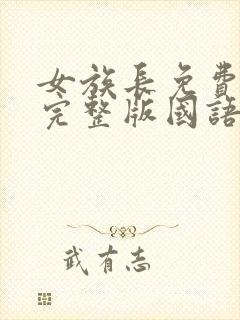 女族長免費
完整版國語
武有志